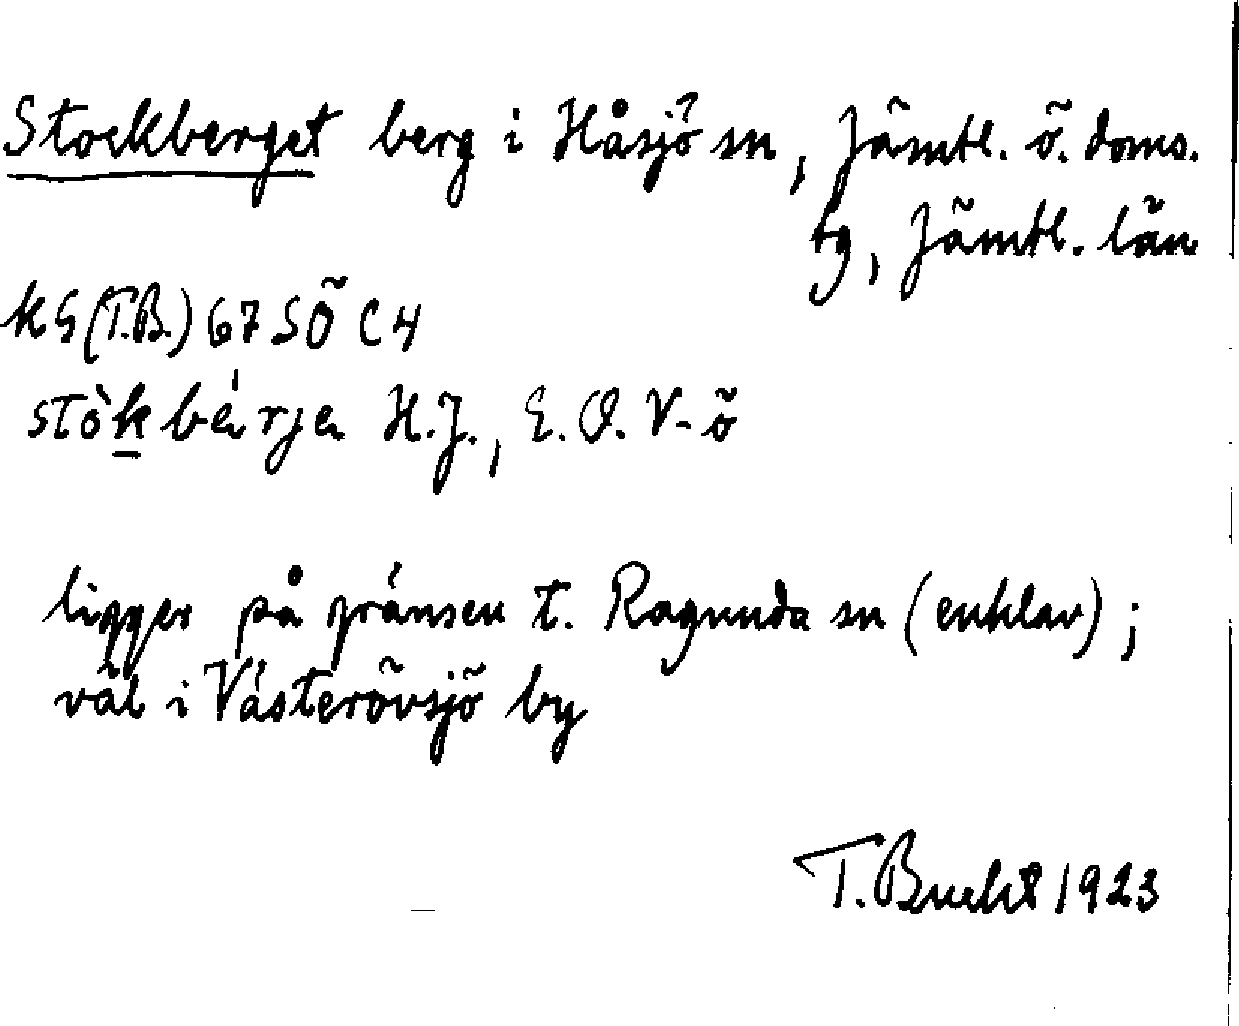 Stockberget berg i Håsjö sn, Jämtl. ö. doms.
tg, Jämtl. län
kG(T.B.) 67 SÖ C4
stòkbérja H.J., E.O. V-ö
ligger på gränsen t. Ragunda sn (enklav);
väl i Västerövsjö by
T. Bucht 1923